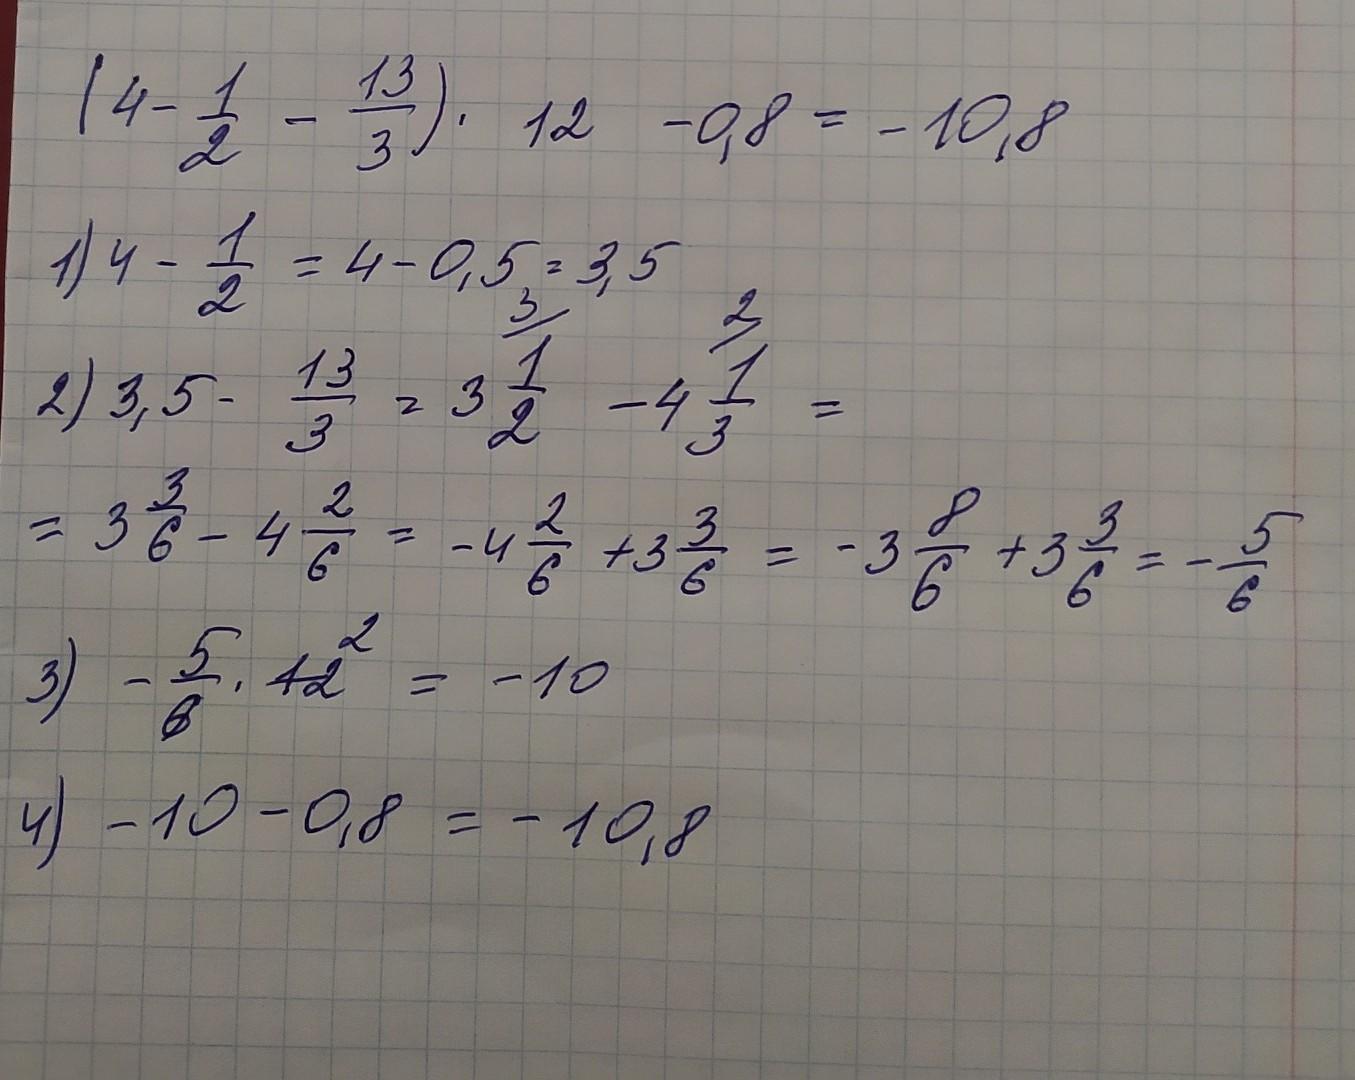 (4 - 1/2 - 13/3) · 12 - 0,8 = - 10,8
1) 4 - 1/2 = 4 - 0,5 = 3,5
2) 3,5 - 13/3 = 3 1/2 3/ - 4 1/3 2/ =
= 3 3/6 - 4 2/6 = - 4 2/6 + 3 3/6 = - 3 8/6 + 3 3/6 = - 5/6
3) - 5/6 · 12 2 = - 10
4) - 10 - 0,8 = - 10,8